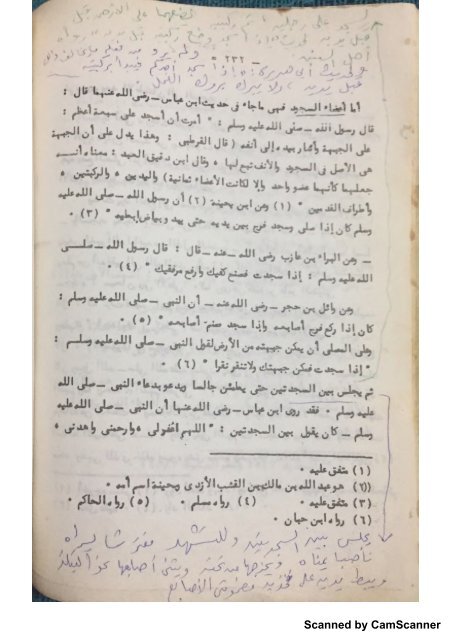 - ٢٣٢ -
أما أعضاء السجود فهي ماجاء في حديث ابن عباس - رضي الله عنهما قال :
قال رسول الله - صلى الله عليه وسلم : " أمرت أن أسجد على سبعة أعظم :
على الجبهة وأشار بيده إلى أنفه ( قال القرطبي : وهذا يدل على أن الجبهة
هي الأصل في السجود والأنف تبع لها ، وقال ابن دقيق العيد : معناه أنه
جعلهما كأنهما عضو واحد وإلا لكانت الأعضاء ثمانية ) واليدين ، والركبتين ،
وأطراف القدمين " (١) وعن ابن بحينة (٢) أن رسول الله - صلى الله عليه
وسلم كان إذا صلى وسجد فرج بين يديه حتى يبدو بياض إبطيه " (٣) .
- وعن البراء بن عازب رضى الله - عنه - قال : قال رسول الله - صلى
الله عليه وسلم : إذا سجدت فضع كفيك وارفع مرفقيك " (٤) .
وعن وائل بن حجر - رضى الله عنه - أن النبي - صلى الله عليه وسلم :
كان إذا ركع فرج أصابعه وإذا سجد ضم أصابعه " (٥) .
وعلى المصلى أن يمكن جبهته من الأرض لقول النبي - صلى الله عليه وسلم :
" إذا سجدت فمكن جبهتك ولا تنقر نقرا " (٦) .
ثم يجلس بين السجدتين حتى يطمئن جالسا ويدعو بدعاء النبي - صلى الله
عليه وسلم . فقد روى ابن عباس - رضى الله عنهما أن النبي - صلى الله عليه
وسلم - كان يقول بين السجدتين : " اللهم اغفرلى ، وارحمنى واهدنى ،
(١) متفق عليه .
(٢) هو عبد الله بن مالك بن القشب الأزدى وبحينة اسم أمه .
(٣) متفق عليه . (٤) رواه مسلم . (٥) رواه الحاكم .
(٦) رواه ابن حبان .
يجلس بين السجدتين وللتشهد مفترشا يسراه
ناصبا يمناه ويخرجها من تحته ويثنى أصابعها نحو القبلة
ويبسط يديه على فخذيه مضمومتى الأصابع
Scanned by CamScanner